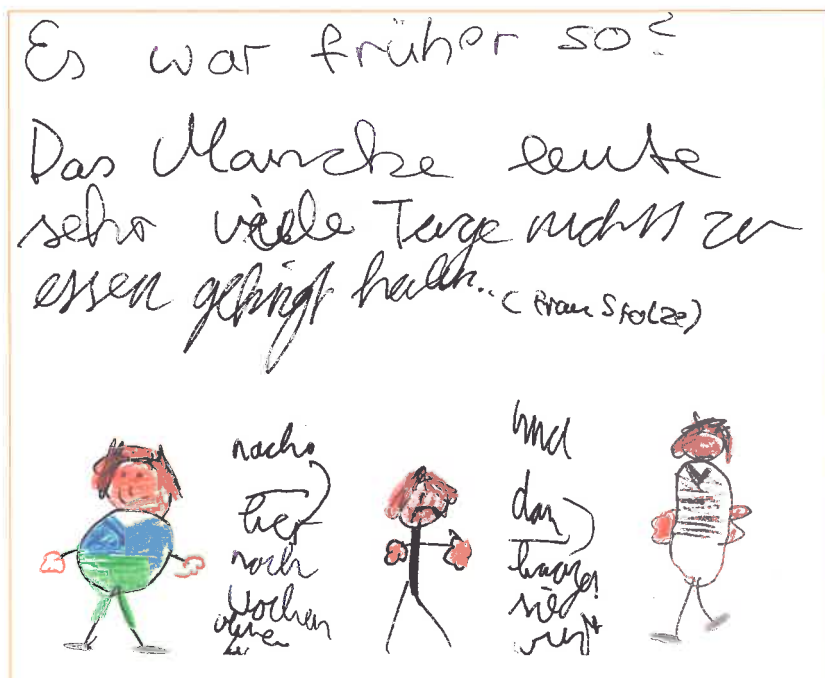 Es war früher so?
Das Manche leute
sehr viele Tage nichts zu
essen gekrigt haben.. (Frau Stolze)
nachs
hier
nach
Wochen
und
dan